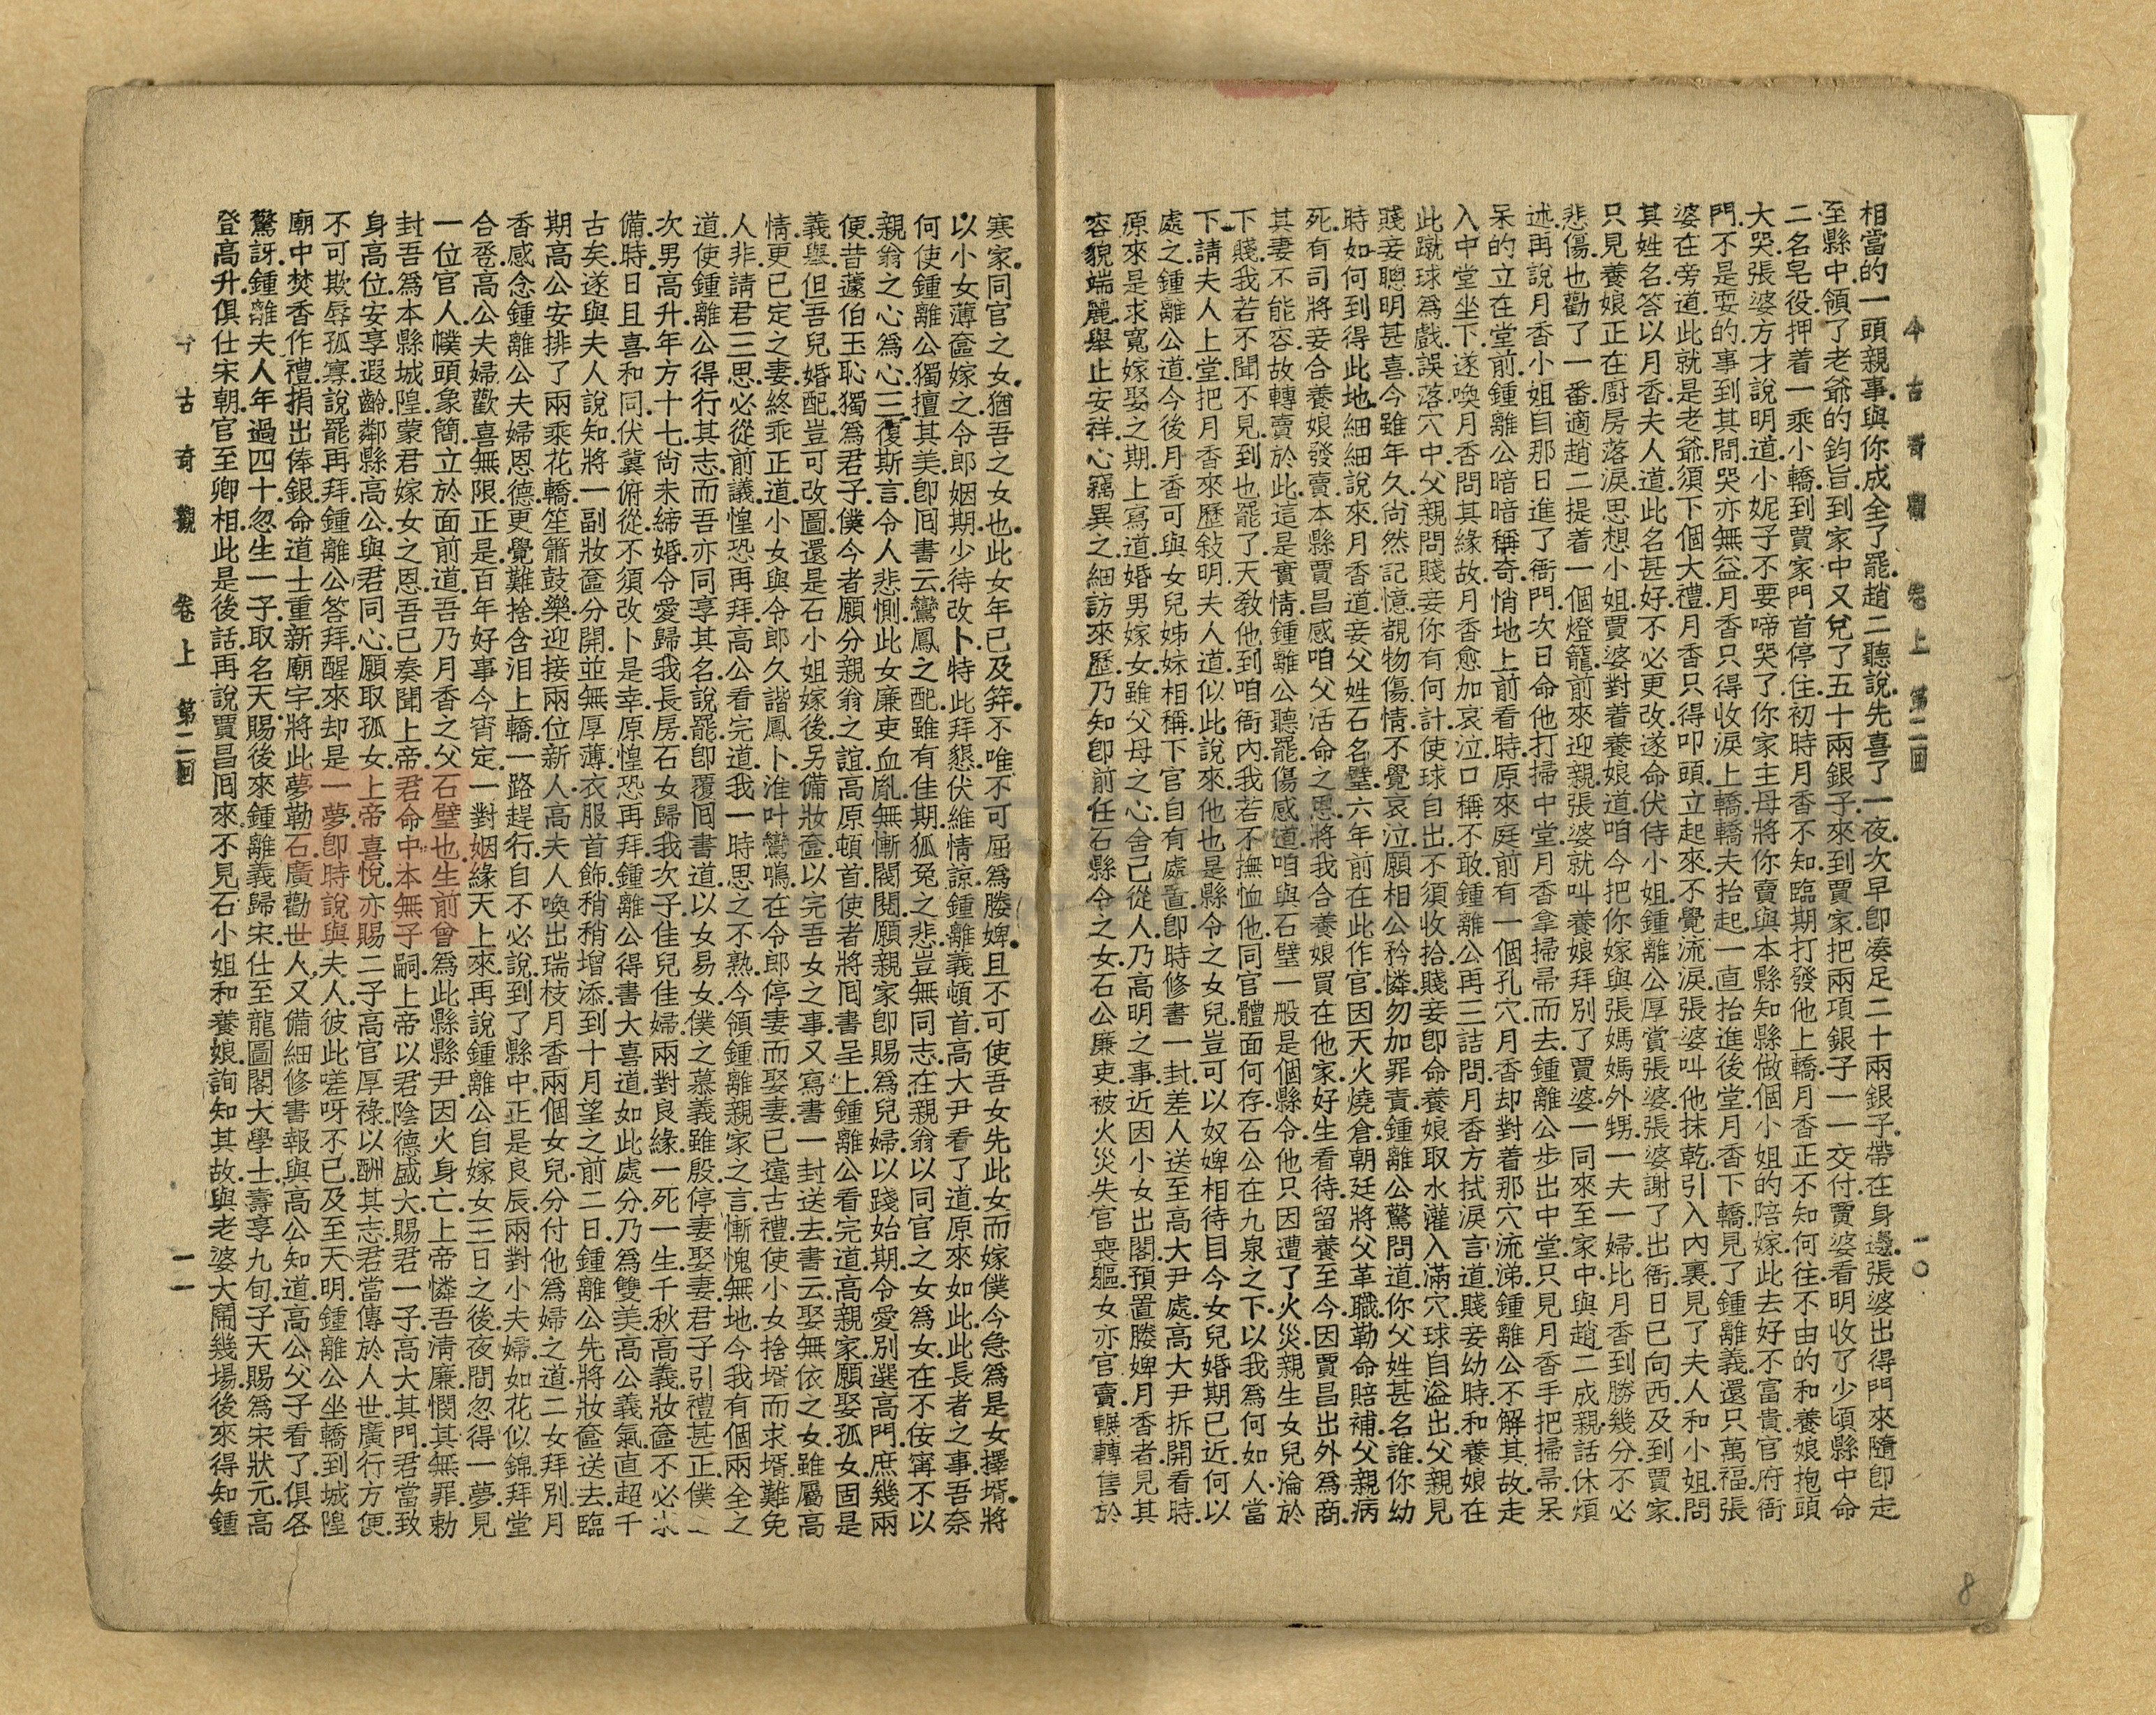 今古奇觀 卷上 第二回 一〇
相當的一頭親事.與你成全了罷.趙二聽說.先喜了一夜.次早卽湊足二十兩銀子.帶在身邊.張婆出得門來.隨卽走
至縣中.領了老爺的鈞旨.到家中又兌了五十兩銀子.來到賈家.把兩項銀子一一交付.賈婆看明收了.少頃縣中命
二名皂役.押着一乘小轎.到賈家門首停住.初時月香不知.臨期打發他上轎.月香正不知何往.不由的和養娘抱頭
大哭.張婆方才說明道.小妮子不要啼哭了.你家主母.將你賣與本縣知縣做個小姐的陪嫁.此去好不富貴.官府衙
門.不是耍的.事到其間.哭亦無益.月香只得收淚上轎.轎夫抬起.一直抬進後堂.月香下轎.見了鍾離義.還只萬福.張
婆在旁道.此就是老爺.須下個大禮.月香只得叩頭.立起來.不覺流淚.張婆叫他抹乾.引入內裏.見了夫人和小姐.問
其姓名.答以月香.夫人道.此名甚好.不必更改.遂命伏侍小姐.鍾離公厚賞張婆.張婆謝了出衙.日已向西.及到賈家.
只見養娘正在廚房落淚.思想小姐.賈婆對着養娘道.咱今把你嫁與張媽媽外甥.一夫一婦.比月香到勝幾分.不必
悲傷也.勸了一番.適趙二提着一個燈籠.前來迎親.張婆就叫養娘拜別了賈婆.一同來至家中.與趙二成親.話休煩
述.再說月香小姐.自那日進了衙門.次日命他打掃中堂.月香拿掃帚而去.鍾離公步出中堂.只見月香手把掃帚.呆
呆的立在堂前.鍾離公暗暗稱奇.悄地上前看時.原來庭前有一個孔穴.月香却對着那穴流涕.鍾離公不解其故.走
入中堂坐下.遂喚月香.問其緣故.月香愈加哀泣.口稱不敢.鍾離公再三詰問.月香方拭淚言道.賤妾幼時.和養娘在
此蹴球爲戲.誤落穴中.父親問賤妾你有何計.使球自出.不須收拾.賤妾卽命養娘取水灌入.滿穴球自溢出.父親見
賤妾聰明甚喜.今雖年久.尙然記憶.覩物傷情.不覺哀泣.願相公矜憐.勿加罪責.鍾離公驚問道.你父姓甚名誰.你幼
時如何到得此地.細細說來.月香道.妾父姓石名璧.六年前在此作官.因天火燒倉.朝廷將父革職.勒命賠補.父親病
死.有司將妾合養娘發賣.本縣賈昌感咱父活命之恩.將我合養娘買在他家.好生看待.留養至今.因賈昌出外爲商.
其妻不能容.故轉賣於此.這是實情.鍾離公聽罷.傷感道.咱與石璧一般是個縣令.他只因遭了火災.親生女兒淪於
下賤.我若不聞不見到也罷了.天敎他到咱衙內.我若不撫恤他.同官體面何存.石公在九泉之下.以我爲何如人.當
下請夫人上堂.把月香來歷敍明.夫人道.似此說來.他也是縣令之女兒.豈可以奴婢相待.目今女兒婚期已近.何以
處之.鍾離公道.今後月香.可與女兒姊妹相稱.下官自有處置.卽時修書一封.差人送至高大尹處.高大尹拆開看時.
原來是求寬嫁娶之期.上寫道.婚男嫁女.雖父母之心.舍己從人.乃高明之事.近因小女出閣.預置媵婢月香者.見其
容貌端麗.舉止安祥.心竊異之.細訪來歷.乃知卽前任石縣令之女.石公廉吏.被火災失官喪軀.女亦官賣.輾轉售於
寒家.同官之女.猶吾之女也.此女年已及笄.不唯不可屈爲媵婢.且不可使吾女先此女而嫁.僕今急爲是女擇壻.將
以小女薄奩嫁之.令郎姻期.少待改卜.特此拜懇.伏維情諒.鍾離義頓首.高大尹看了道.原來如此.此長者之事.吾奈
何使鍾離公獨擅其美.卽囘書云.鸞鳳之配.雖有佳期.狐兔之悲.豈無同志.在親翁以同官之女爲女.在不佞寗不以
親翁之心爲心.三復斯言.令人悲惻.此女廉吏血胤.無慚閥閱.願親家卽賜爲兒婦.以踐始期.令愛別選高門.庶幾兩
便.昔蘧伯玉恥獨爲君子.僕今者願分親翁之誼.高原頓首.使者將囘書呈上.鍾離公看完道.高親家願娶孤女.固是
義舉.但吾兒婚配.豈可改圖.還是石小姐嫁後.另備妝奩.以完吾女之事.又寫書一封送去.書云.娶無依之女.雖屬高
情.更已定之妻.終乖正道.小女與令郎.久諧鳳卜.淮叶鸞鳴.在令郎停妻而娶妻.已違古禮.使小女捨壻而求壻.難免
人非.請君三思.必從前議.惶恐再拜.高公看完道.我一時思之不熟.今領鍾離親家之言.慚愧無地.今我有個兩全之
道.使鍾離公得行其志.而吾亦同享其名.說罷.卽覆囘書道.以女易女.僕之慕義雖殷.停妻娶妻.君子引禮甚正.僕之
次男高升.年方十七.尙未締婚.令愛歸我長房.石女歸我次子.佳兒佳婦.兩對良緣.一死一生.千秋高義.妝奩不必求
備.時日且喜和同.伏冀俯從.不須改卜.是幸.原惶恐再拜.鍾離公得書大喜道.如此處分.乃爲雙美.高公義氣.直超千
古矣.遂與夫人說知.將一副妝奩.分開並無厚薄.衣服首飾.稍稍增添.到十月望之前二日.鍾離公先將妝奩送去.臨
期高公安排了兩乘花轎.笙簫鼓樂.迎接兩位新人.高夫人喚出瑞枝月香兩個女兒.分付他爲婦之道.二女拜別.月
香感念鍾離公夫婦恩德.更覺難捨.含泪上轎.一路趕行.自不必說.到了縣中.正是良辰.兩對小夫婦.如花似錦.拜堂
合巹.高公夫婦.歡喜無限.正是.百年好事今宵定.一對姻緣天上來.再說鍾離公.自嫁女三日之後.夜間忽得一夢.見
一位官人.幞頭象簡.立於面前道.吾乃月香之父石璧也.生前曾爲此縣縣尹.因火身亡.上帝憐吾淸廉.憫其無罪.勅
封吾爲本縣城隍.蒙君嫁女之恩.吾已奏聞上帝.君命中本無子嗣.上帝以君陰德甚大.賜君一子.高大其門.君當致
身高位.安享遐齡.鄰縣高公與君同心.願取孤女.上帝喜悅.亦賜二子高官厚祿.以酬其志.君當傳於人世.廣行方便.
不可欺辱孤寡.說罷再拜.鍾離公答拜.醒來却是一夢.卽時說與夫人.彼此嗟呀不已.及至天明.鍾離公坐轎到城隍
廟中.焚香作禮.捐出俸銀.命道士重新廟宇.將此夢勒石.廣勸世人.又備細修書.報與高公知道.高公父子看了.俱各
驚訝.鍾離夫人年過四十.忽生一子.取名天賜.後來鍾離義歸宋.仕至龍圖閣大學士.壽享九旬.子天賜.爲宋狀元.高
登高升.俱仕宋朝.官至卿相.此是後話.再說賈昌囘來.不見石小姐和養娘.詢知其故.與老婆大鬧幾場.後來得知鍾
今古奇觀 卷上 第二回 一一
8